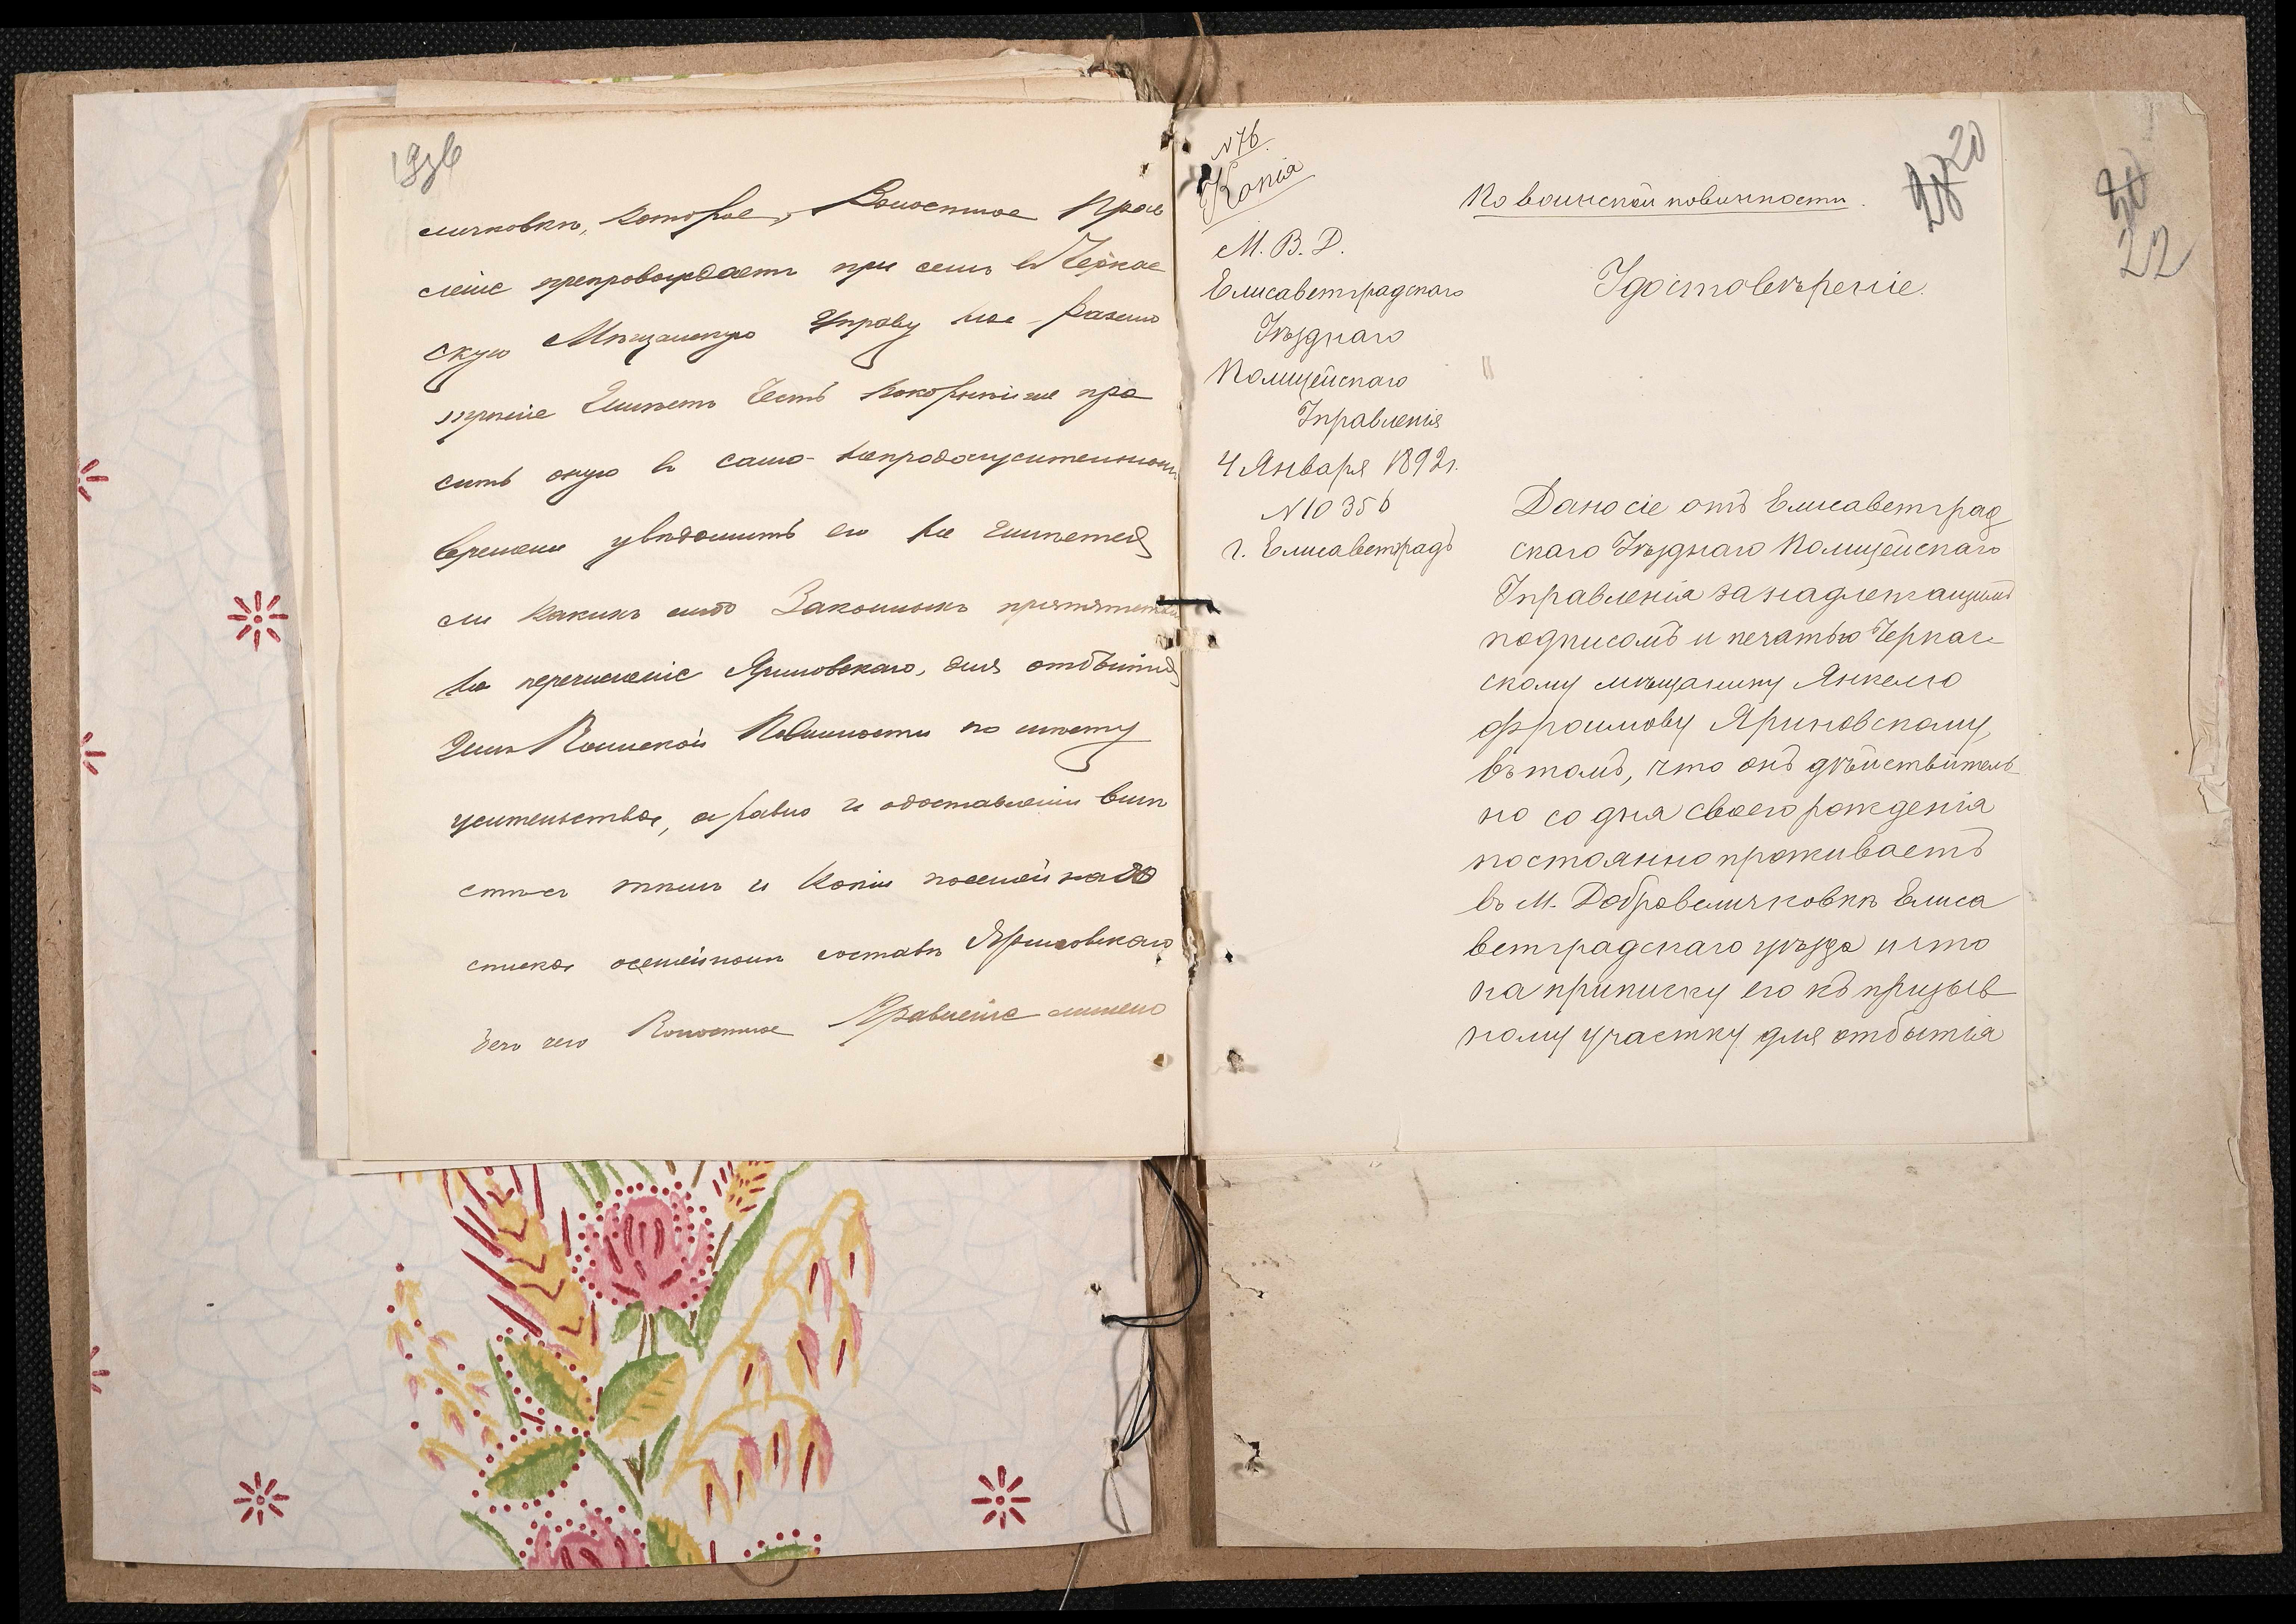 личковкѣ, которое, Волостное Прав
леніе препровождаетъ при семъ въ Черкас
скую Мѣщанскую Управу на разсмо
трѣніе имѣетъ честь покорнѣйше про
сить оную въ само-непродолжительномъ
времени увѣдомить его не имѣется
ли какихъ либо законныхъ препятствій
на перечисленіе Яриновскаго, для отбытія
имъ Воинской Повинности по мѣсту
жительства, а равно и о доставленіи вмѣ
стѣ съ тѣмъ и копіи посемейнаго
списка о семейномъ составѣ Яриновскаго
безъ чего Волостное Правленіе лишено
N 76.
Копія
М. В. Д.
Елисаветградскаго
Уѣзднаго
Полицейскаго
Управленія
4 Января 1892 г.
N 10356
г. Елисаветградъ
20
22
По воинской повинности.
Удостовѣреніе.
Дано сіе отъ Елисаветград
скаго Уѣзднаго Полицейскаго
Управленія за надлежащимъ
подписомъ и печатью Черкас
скому мѣщанину Янкелю
Фроимову Яриновскому,
въ томъ, что онъ дѣйствитель
но со дня своего рожденія
постоянно проживаетъ
въ М. Добровеличковкѣ Елиса
ветградскаго уѣзда и что
на приписку его къ призыв
ному участку для отбытія